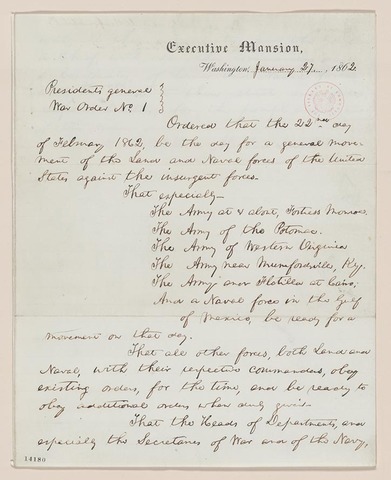 Executive Mansion,
Washington, January 27, 1862.
Presidents general
War Order No. 1
Ordered that the 22nd day
of February 1862, be the day for a general move-
ment of the Land and Naval forces of the United
States against the insurgent forces.
That especially—
The Army at & about, Fortress Monroe.
The Army of the Potomac.
The Army of Western Virginia
The Army near Mumfordville, Ky.
The Army and Flotilla at Cairo.
And a Naval force in the Gulf
of Mexico, be ready for a
movement on that day.
That all other forces, both Land and
Naval, with their respective commanders, obey
existing orders, for the time, and be ready to
obey additional orders when duly given.
That the Heads of Departments, and
especially the Secretaries of War and of the Navy,
14180